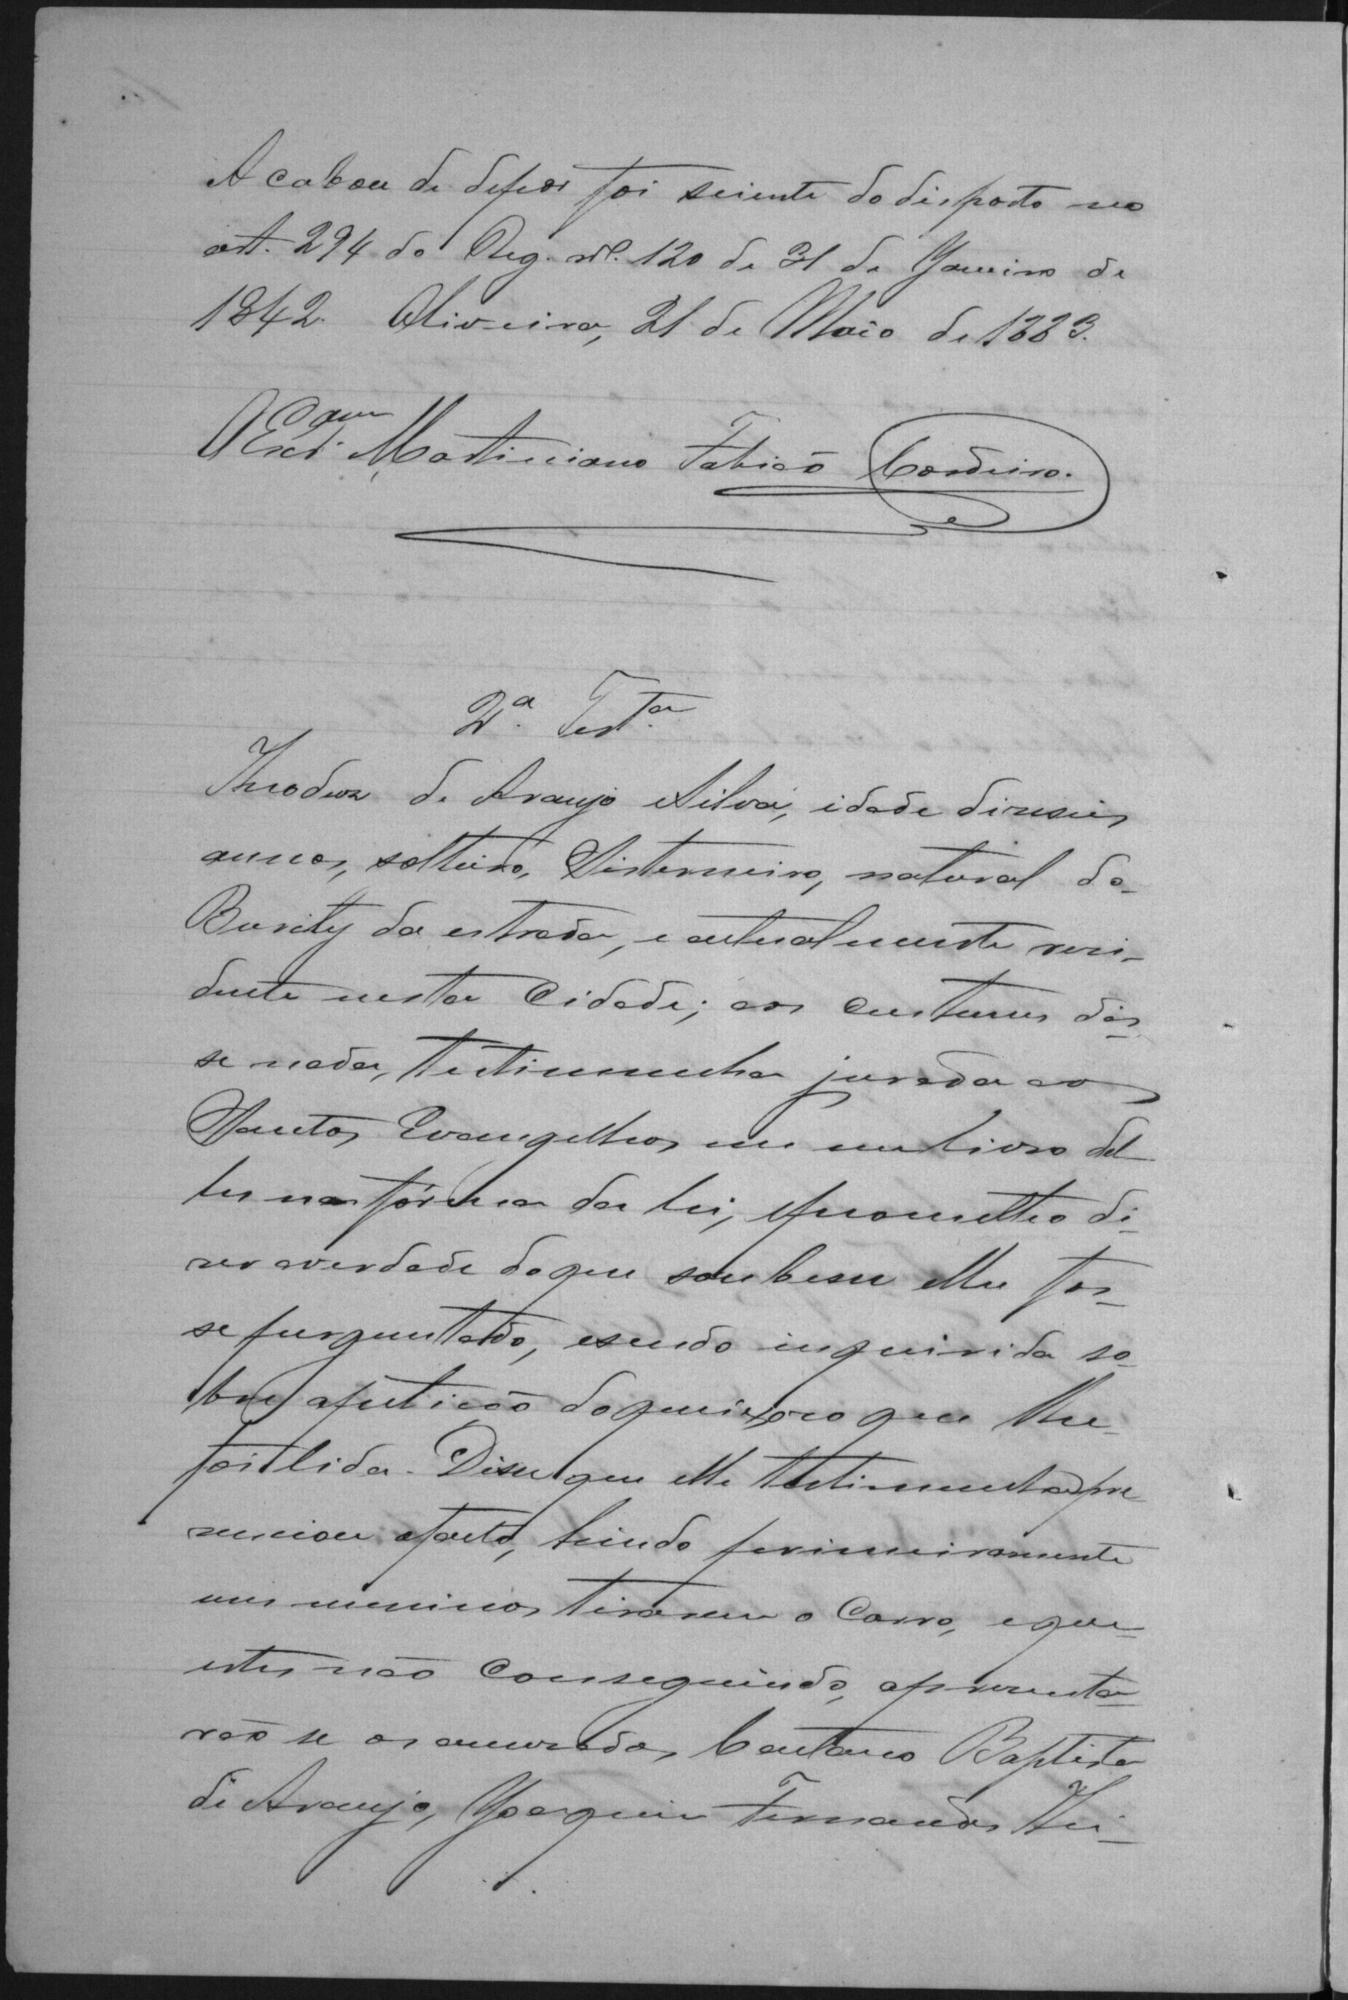 Acabou de depor foi sciente do disposto no
art. 294 do Reg. nº. 120 de 31 de Janeiro de
1842. Oliveira, 21 de Maio de 1883.
O Escr.
Martiniano Fabião Cordeiro.
2ª. Testª.
Theodoro de Araujo Silva, idade diseseis
annos, solteiro, Sisterneiro, natural do
Burity da estrada, e actualmente resi-
dente nesta Cidade; aos custumes dis-
se nada, testimunha jurada aos
Santos Evangelhos em um livro del-
les na fórma da lei, e prometteo di-
ser a verdade do que soubesse e lhe fos-
se perguntado, e sendo inquirida so-
bre a petição do queixoso que lhe
foi lida. Disse que elle testimunha pre-
senciou o facto, hindo primeiramente
uns meninos tirarem o Carro, e que
estes não conseguindo, apresenta-
rão se os accusados, Caetano Baptista
de Araujo, Joaquim Fernandes Hei-